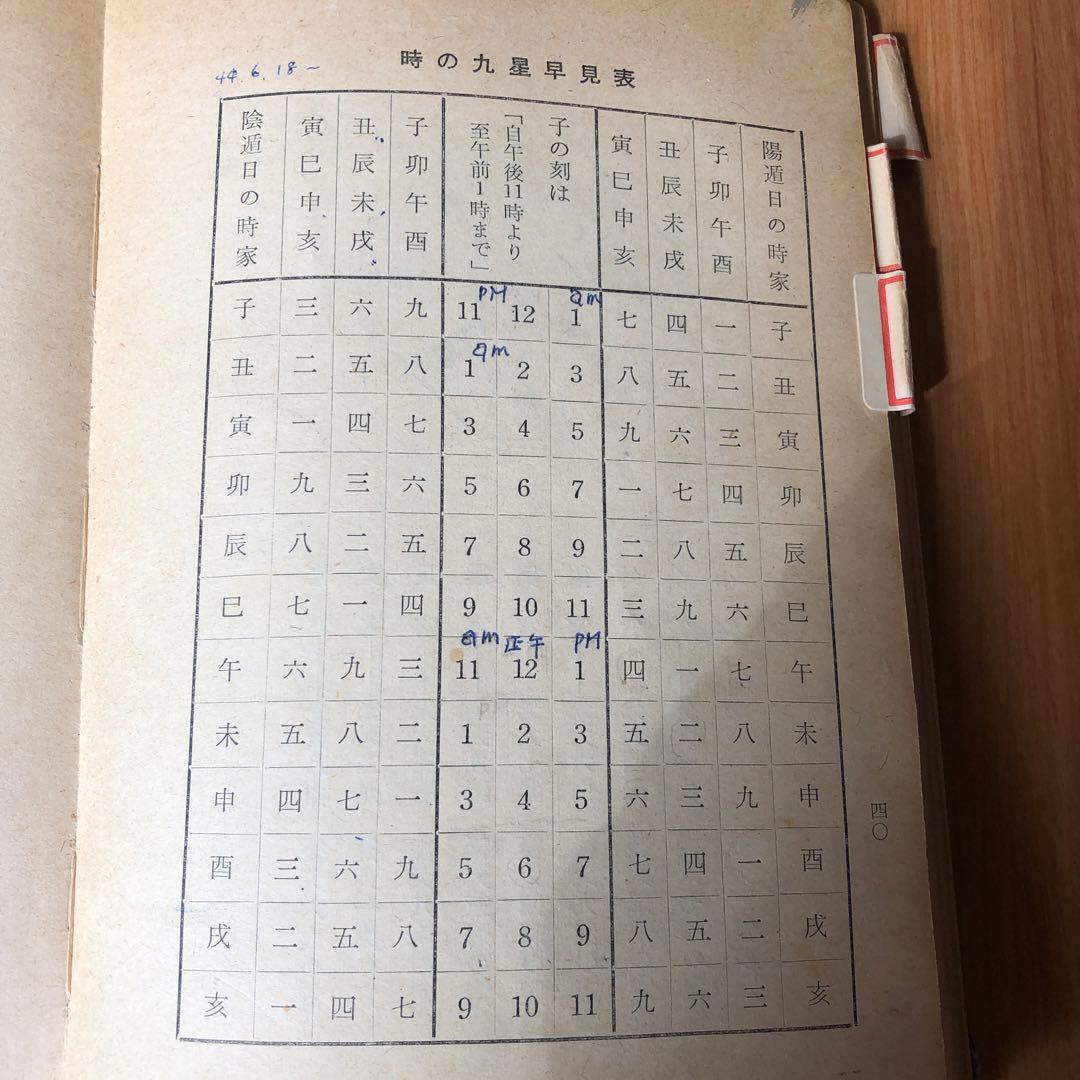 時の九星早見表
44.6.18〜
陽遁日の時家 子卯午酉 丑辰未戌 寅巳申亥 子の刻は「自午後11時より至午前1時まで」 子卯午酉 丑辰未戌 寅巳申亥 陰遁日の時家
PM am
子 三 六 九 11 12 1 七 四 一 子
am
丑 二 五 八 1 2 3 八 五 二 丑
寅 一 四 七 3 4 5 九 六 三 寅
卯 九 三 六 5 6 7 一 七 四 卯
辰 八 二 五 7 8 9 二 八 五 辰
巳 七 一 四 9 10 11 三 九 六 巳
am 正午 PM
午 六 九 三 11 12 1 四 一 七 午
未 五 八 二 1 2 3 五 二 八 未
申 四 七 一 3 4 5 六 三 九 申
酉 三 六 九 5 6 7 七 四 一 酉
戌 二 五 八 7 8 9 八 五 二 戌
亥 一 四 七 9 10 11 九 六 三 亥
四〇